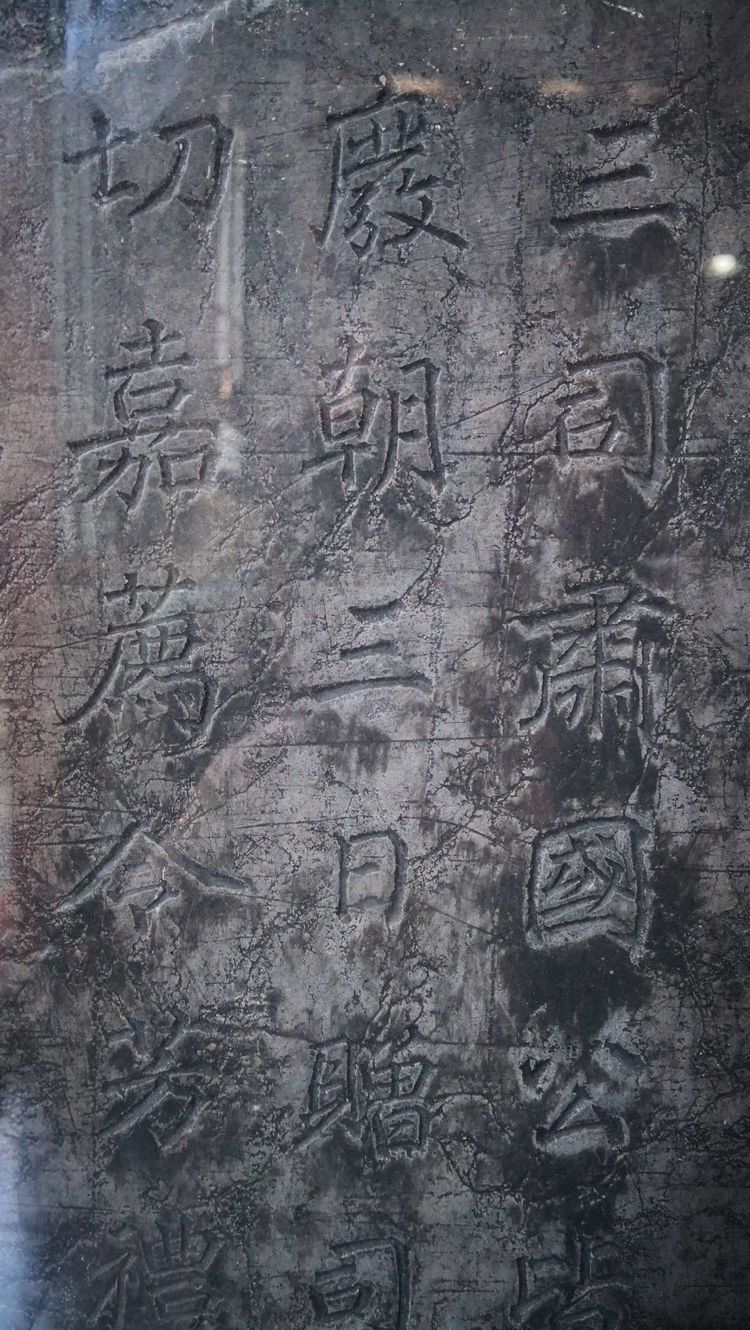 三司肅國公皆
廢朝三日贈司
切嘉薦令芳禮